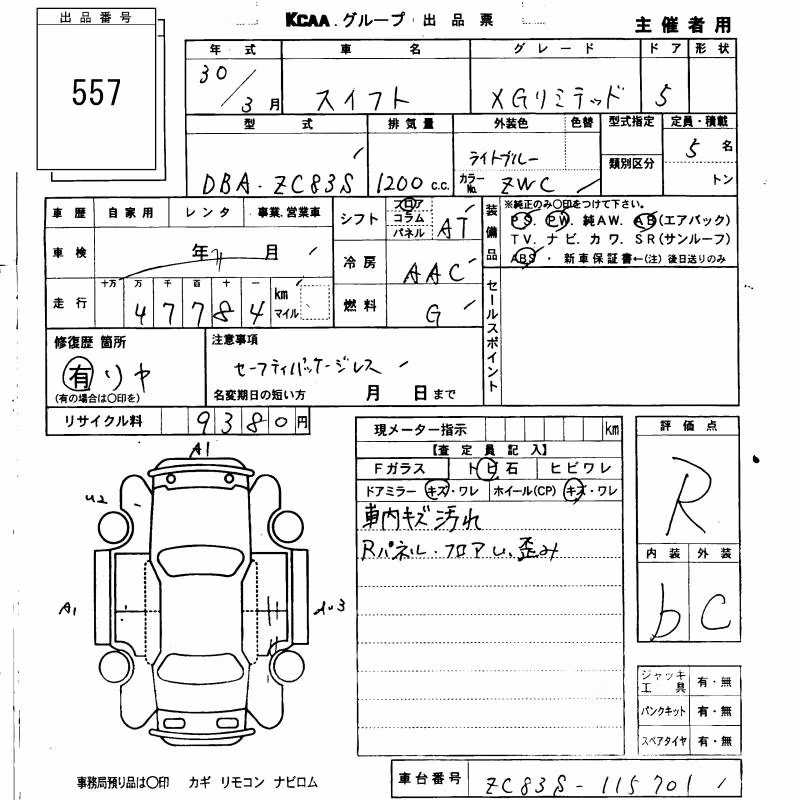 出品番号
557
KCAA.グループ 出品票
主催者用
年式 車名 グレード ドア 形状
30/3月 スイフト XGリミテッド 5
型式 排気量 外装色 色替 型式指定 定員・積載
類別区分
DBA-ZC83S 1200c.c. ライトブルー カラーNo. ZWC 5名
トン
車歴 自家用 レンタ 事業.営業車
車検 年 月
走行 十万 万 千 百 十 一
47784 km マイル
シフト フロア コラム パネル AT
冷房 AAC
燃料 G
装備品
※純正のみ○印をつけて下さい。
PS. PW. 純AW. AB(エアバック)
TV. ナビ. カワ. SR(サンルーフ)
ABS ・ 新車保証書←(注) 後日送りのみ
セールスポイント
修復歴 箇所
有 リヤ
(有の場合は○印を)
注意事項
セーフティパッケージレス
名変期日の短い方 月 日まで
リサイクル料 9380円
現メーター指示 km
【査定員記入】
Fガラス トビ石 ヒビワレ
ドアミラー キズ・ワレ ホイール(CP) キズ・ワレ
車内キズ汚れ
Rパネル・フロアU、歪み
評価点
R
内装 外装
b C
ジャッキ工具 有・無
パンクキット 有・無
スペアタイヤ 有・無
A1
U2
A1
事務局預り品は○印 カギ リモコン ナビロム
車台番号 ZC83S-115701